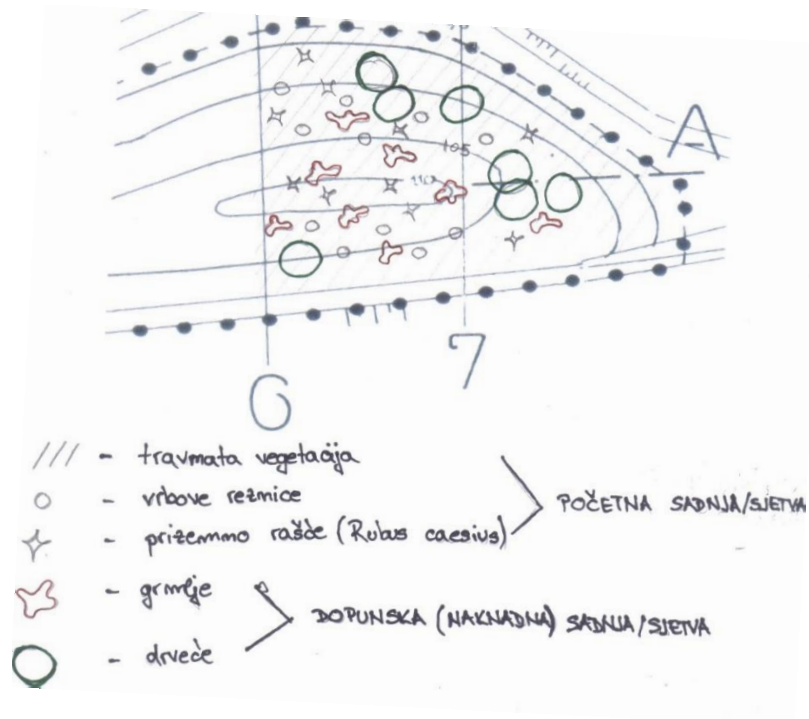 A
105
6
7
/// - travnata vegetacija
- vrbove reznice
- prizemno rašće (Rubus caesius)
POČETNA SADNJA/SJETVA
- grmlje
DOPUNSKA (NAKNADNA) SADNJA/SJETVA
- drveće